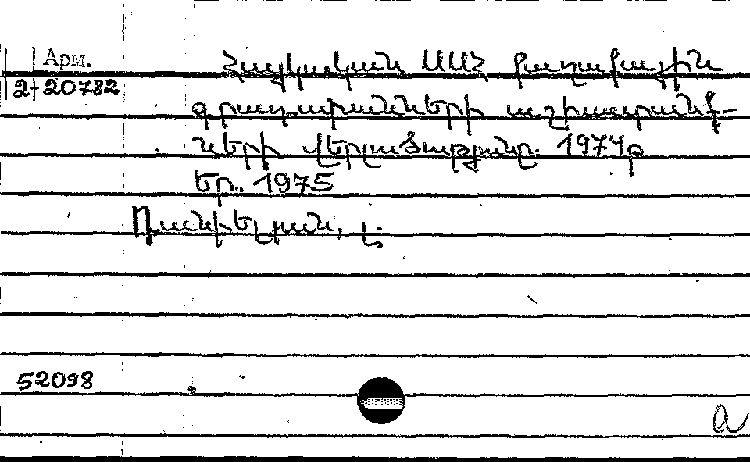 Арм.
2-20782
Հայկական ՍՍՀ քաղաքային
գրադարանների աշխատանք-
ների վերլուծությունը. 1974թ
Եր., 1975
Դանիելյան, Լ.
52098
a